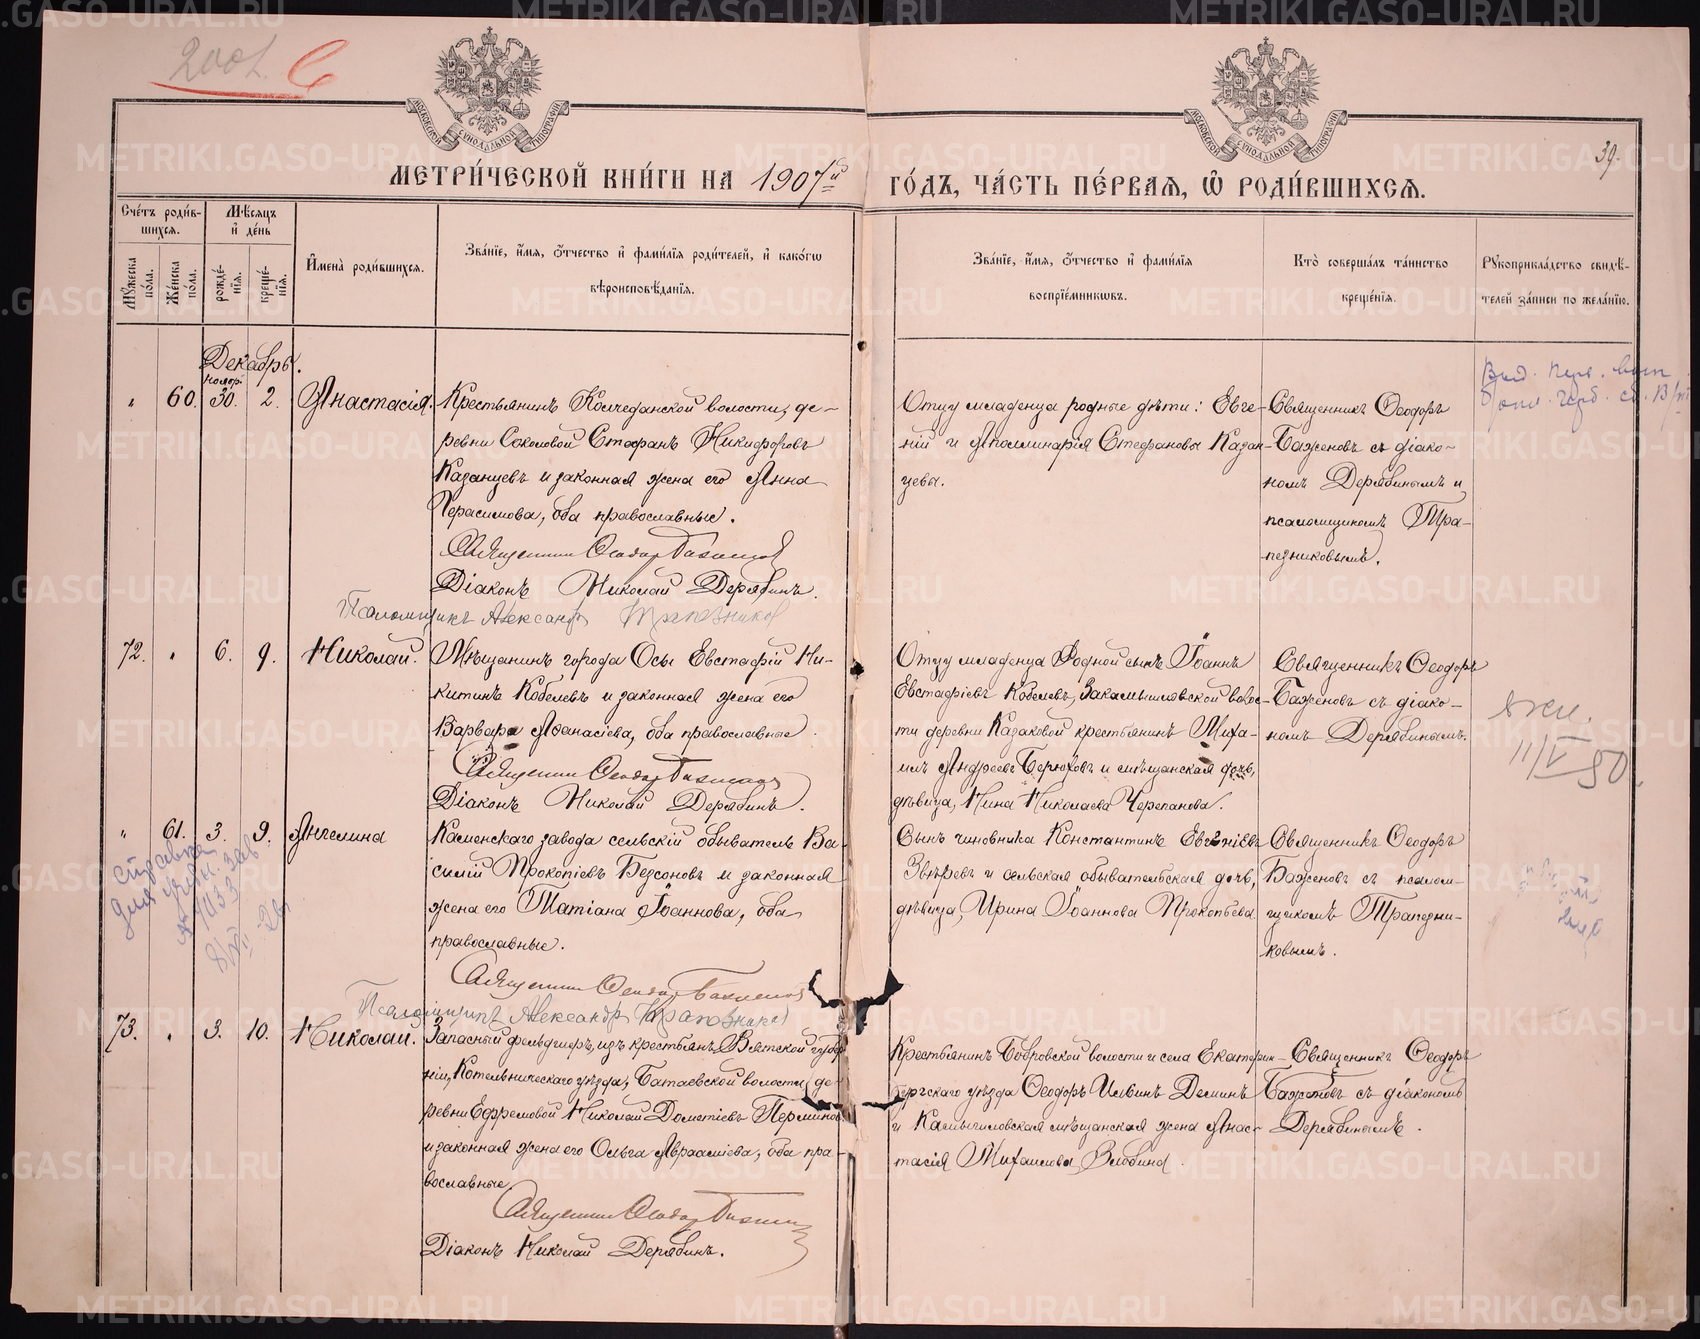 200 г.
39.
МОСКОВСКОЙ СѴНОДАЛЬНОЙ ТИПОГРАФІИ
МОСКОВСКОЙ СѴНОДАЛЬНОЙ ТИПОГРАФІИ
МЕТРИ́ЧЕСКОЙ КНИ́ГИ НА 1907й ГО́ДЪ, ЧА́СТЬ ПЕ́РВАЯ, Ѡ РОДИ́ВШИХСЯ.
Сче́тъ роди́в-
шихся.
Мꙋ́жеска по́ла.
Же́нска по́ла.
Мѣ́сяцъ
и҆ де́нь
рожде́-
нїя.
креще́-
нїя.
И҆мена̀ роди́вшихся.
Зва́нїе, и҆́мя, ѻ҆́тчество и҆ фами́лїя роди́телей, и҆ како́гѡ
вѣроисповѣ́данїя.
Зва́нїе, и҆́мя, ѻ҆́тчество и҆ фами́лїя
воспрїе́мникѡвъ.
Кто̀ соверша́лъ та́инство
креще́нїя.
Рꙋкоприкла́дство свидѣ́-
телей за́писи по жела́нїю.
Декабрь.
ноябр.
" 60. 30. 2. Анастасія.
Крестьянинъ Колчеданской волости, де-
ревни Соколовой Стефанъ Никифоровъ
Казанцевъ и законная жена его Анна
Герасимова, оба православные.
Священник Феодор Баженов
Діаконъ Николай Дерябинъ.
Псаломщикъ Александр Трапезников
Отцу младенца родные дѣти: Евге-
ній и Аполлинарія Стефановы Казан-
цевы.
Священникъ Феодоръ
Баженовъ съ діако-
номъ Дерябинымъ и
псаломщикомъ Тра-
пезниковымъ.
72. " 6. 9. Николай.
Мѣщанинъ города Осы Евстафій Ни-
китинъ Кобелевъ и законная жена его
Варвара Афанасіева, оба православные.
Священник Феодор Баженов
Діаконъ Николай Дерябинъ.
Отцу младенца родной сынъ Іоаннъ
Евстафіевъ Кобелевъ, Закамышловской волос-
ти деревни Казаковой крестьянинъ Миха-
илъ Андреевъ и мѣщанская дочь,
дѣвица, Нина Николаева Черепанова.
Священникъ Феодоръ
Баженовъ съ діако-
номъ Дерябинымъ.
11/V 50.
" 61. 3. 9. Ангелина
Каменскаго завода сельскій обыватель Ва-
силій Прокопіевъ Безсоновъ и законная
жена его Татіана Іоаннова, оба
православные.
Священник Феодор Баженов
Псаломщикъ Александръ Трапезников
Сынъ чиновника Константинъ Евгеніевъ
Звѣревъ и сельская обывательская дочь,
дѣвица, Ирина Іоаннова Прокопьева
Священникъ Феодоръ
Баженовъ съ псалом-
щикомъ Трапезни-
ковымъ.
73. " 3. 10. Николай.
Запасный фельдшеръ, изъ крестьянъ Вятской губер
ніи, Котельническаго уѣзда, Батаевской волости, де-
ревни Ефремовой Николай Дометіевъ Перминов
и законная жена его Ольга Авраамiева, оба пра-
вославные.
Священник Феодор Баженов
Діаконъ Николай Дерябинъ.
Крестьянинъ Бобровской волости и села Екатерин-
бургскаго уѣзда Феодоръ Ильинъ Деминъ
и Камышловская мѣщанская жена Анас-
тасія Михаилова Злобина.
Священникъ Феодоръ
Баженовъ съ діакономъ
Дерябинымъ.
METRIKI.GASO-URAL.RU